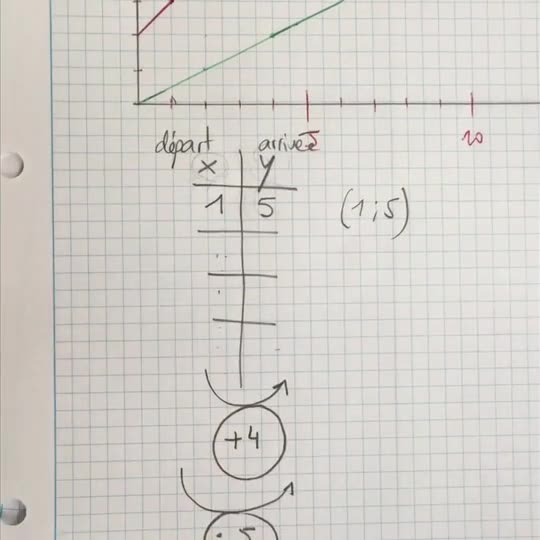 5 10
départ arrivée
x y
1 5 (1;5)
+4
· 5